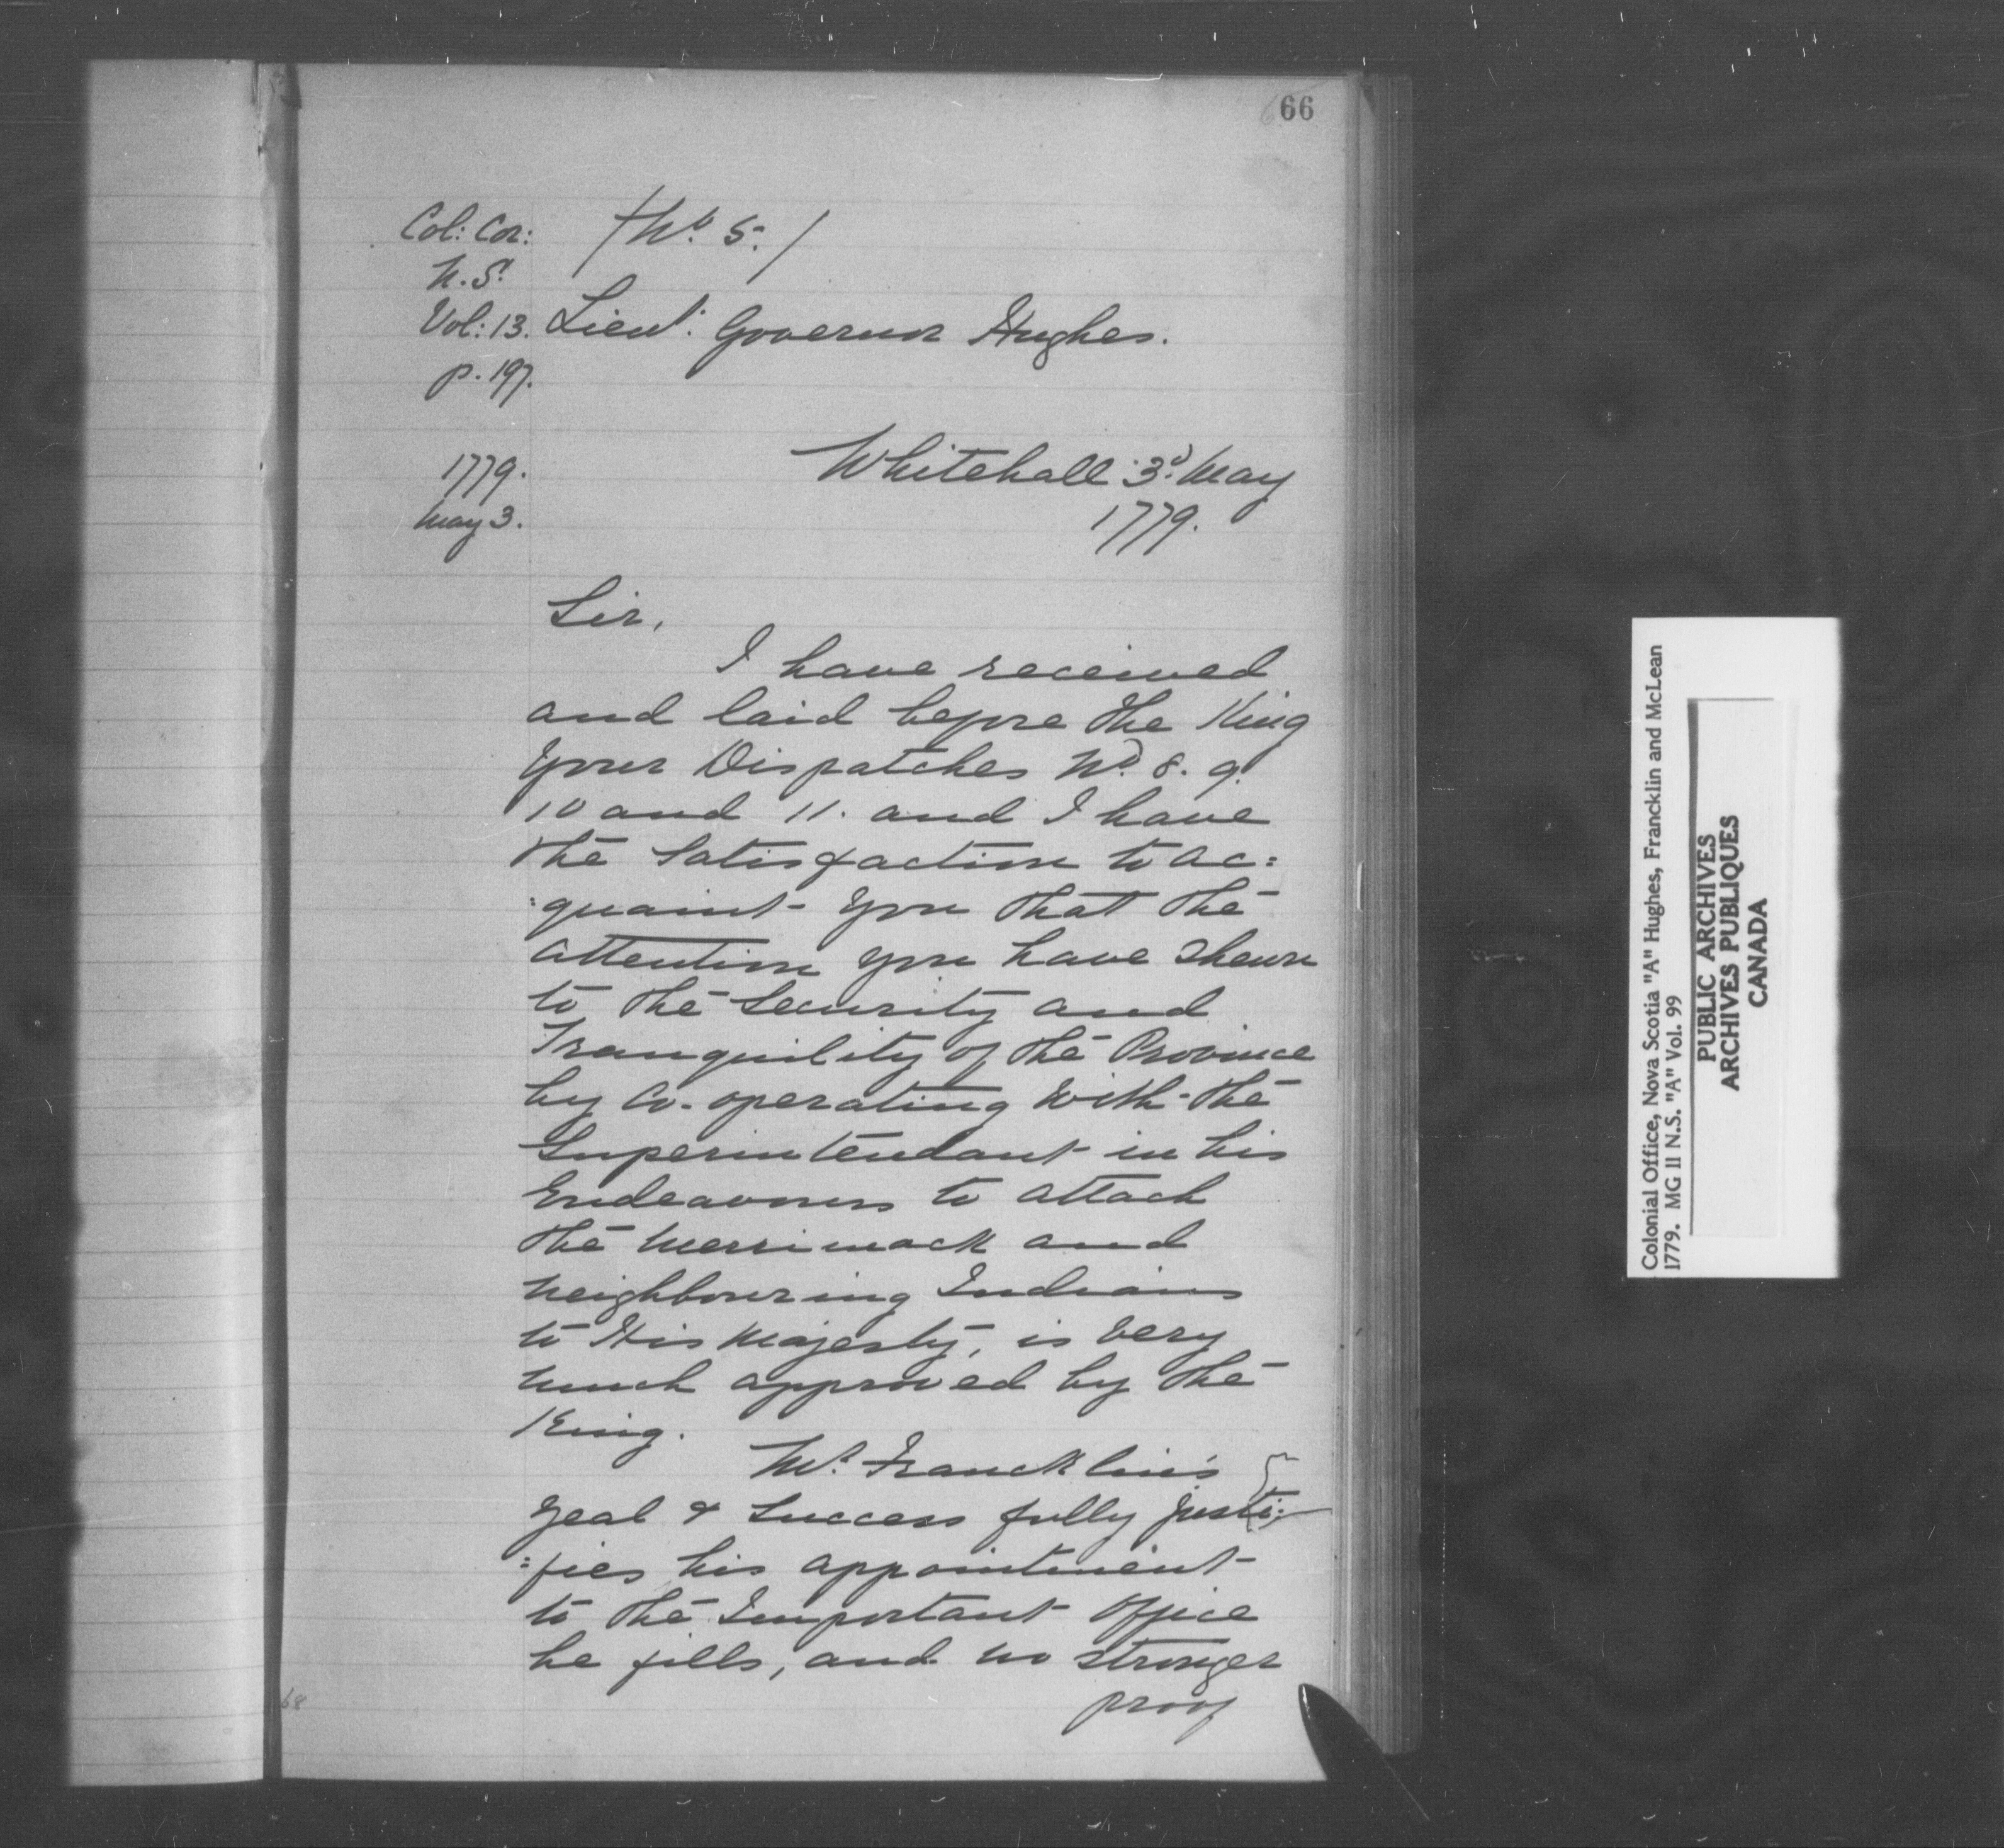 66
Col: Cor:
N.S.
Vol: 13.
p. 197.
/No. 5./
Lieut: Governor Hughes.
1779.
May 3.
Whitehall 3d. May
1779.
Sir,
I have received
and laid before the King
Your Dispatches No. 8. 9.
10 and 11. and I have
the Satisfaction to ac:
:quaint You that the
attention You have shewn
to the Security and
Tranquility of the Province
by Co-operating with the
Superintendant in his
Endeavours to attach
the Merrimack and
neighbouring Indians
to His Majesty, is very
much approved by the
King.
Mr. Francklin's
Zeal & Success fully justi:
:fies his appointment
to the Important Office
he fills, and no stronger
proof
68
Colonial Office, Nova Scotia "A" Hughes, Francklin and McLean
1779. MG 11 N.S. "A" Vol. 99
PUBLIC ARCHIVES
ARCHIVES PUBLIQUES
CANADA